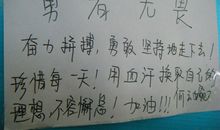 勇者无畏
奋力拼搏，勇敢坚持地走下去！
珍惜每一天！用血汗换取自己的
理想，不容懈怠！加油!!!